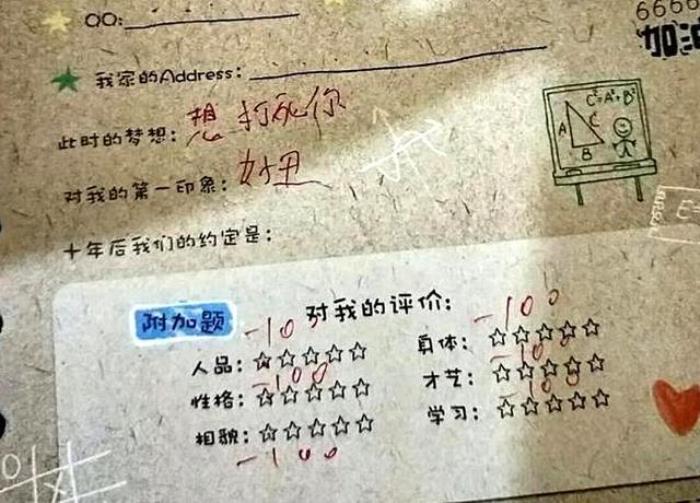 6666
加油
QQ:
我家的Address:
此时的梦想: 想打死你
对我的第一印象: 好丑
十年后我们的约定是:
C²=A²+B²
A
C
B
附加题
对我的评价:
人品: -100
身体: -100
性格: -100
才艺: -100
相貌: -100
学习: -100